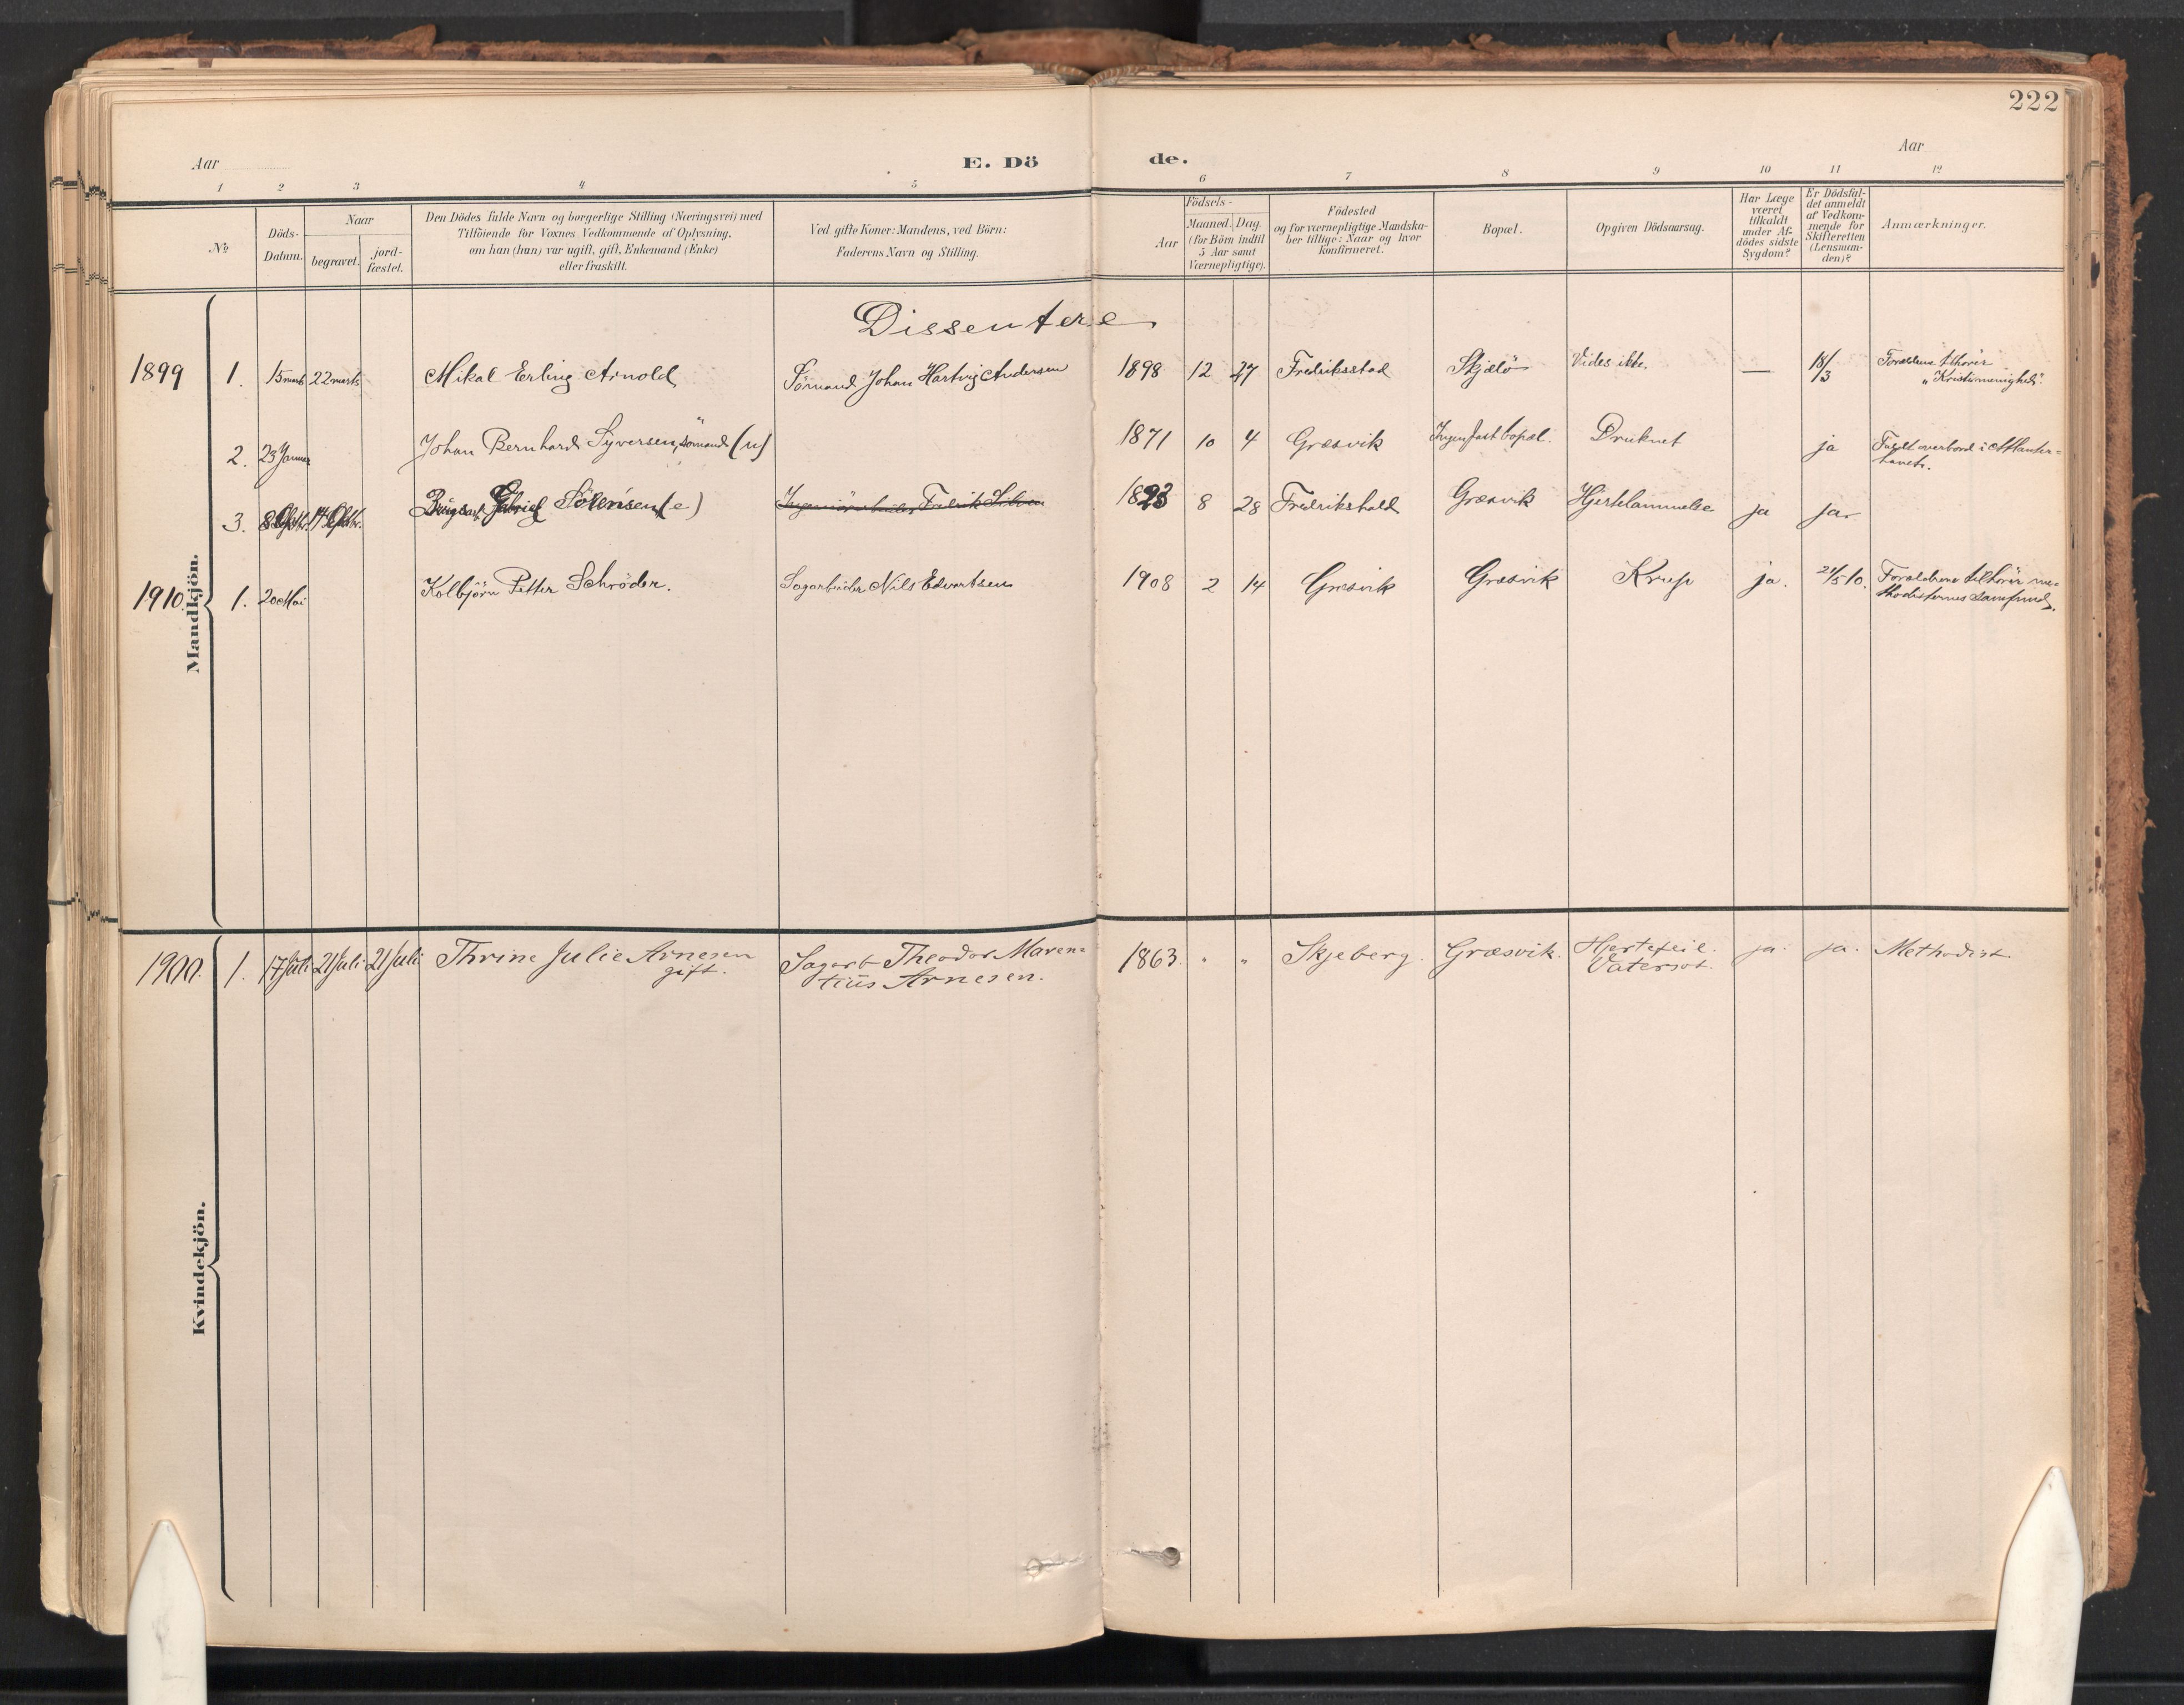 222
Aar
E. Dö de.
Aar
1 2 3 4 5 6 7 8 9 10 11 12
No
Döds-
Datum.
Naar
begravet.
jord-
fæstet.
Den Dödes fulde Navn og borgerlige Stilling (Næringsvei) med
Tilföiende for Voxnes Vedkommende af Oplysning,
om han (hun) var ugift, gift, Enkemand (Enke)
eller fraskilt.
Ved gifte Koner: Mandens, ved Börn:
Faderens Navn og Stilling.
Födsels-
Aar
Maaned. Dag.
(for Börn indtil
5 Aar samt
Værnepligtige).
Födested
og for værnepligtige Mandska-
ber tillige: Naar og hvor
konfirmeret.
Bopæl.
Opgiven Dödsaarsag.
Har Læge
været
tilkaldt
under Af-
dödes sidste
Sygdom?
Er Dödsfal-
det anmeldt
af Vedkom-
mende for
Skifteretten
(Lensman-
den)?
Anmærkninger.
Dissentere
1899 1. 15 marts 22 marts Mikal Erling Arnold Sömand Johan Hartvig Andersen 1898 12 27 Fredriksstad Skjælö Vides ikke. — 18/3 Forældrene tilhörer
"Kristi menighed".
2. 23 Januar Johan Bernhard Syversen, sömand (u) 1871 10 4 Græsvik Ingen fast bopæl. Druknet ja Faldt overbord i Atlanter-
havet.
3. 8 14 Gabriel Sörensen (e) 8 28 Fredrikshald Græsvik Hjertelammelse ja ja
1910. 1. 20 Mai Kolbjörn Petter Schröder. Sagarbeider Nils Edvertsen 1908 2 14 Græsvik Græsvik Krup ja. 21/5 10. Forældrene tilhörer me-
thodisternes samfund.
Mandkjön.
1900. 1. 17 Juli 21 Juli 21 Juli Thrine Julie Arnesen
gift.
Sagarb Theodor Maren-
tius Arnesen.
1863. " " Skjeberg. Græsvik. Hjertefeil.
Vatersot.
ja. ja. Methodist.
Kvindekjön.